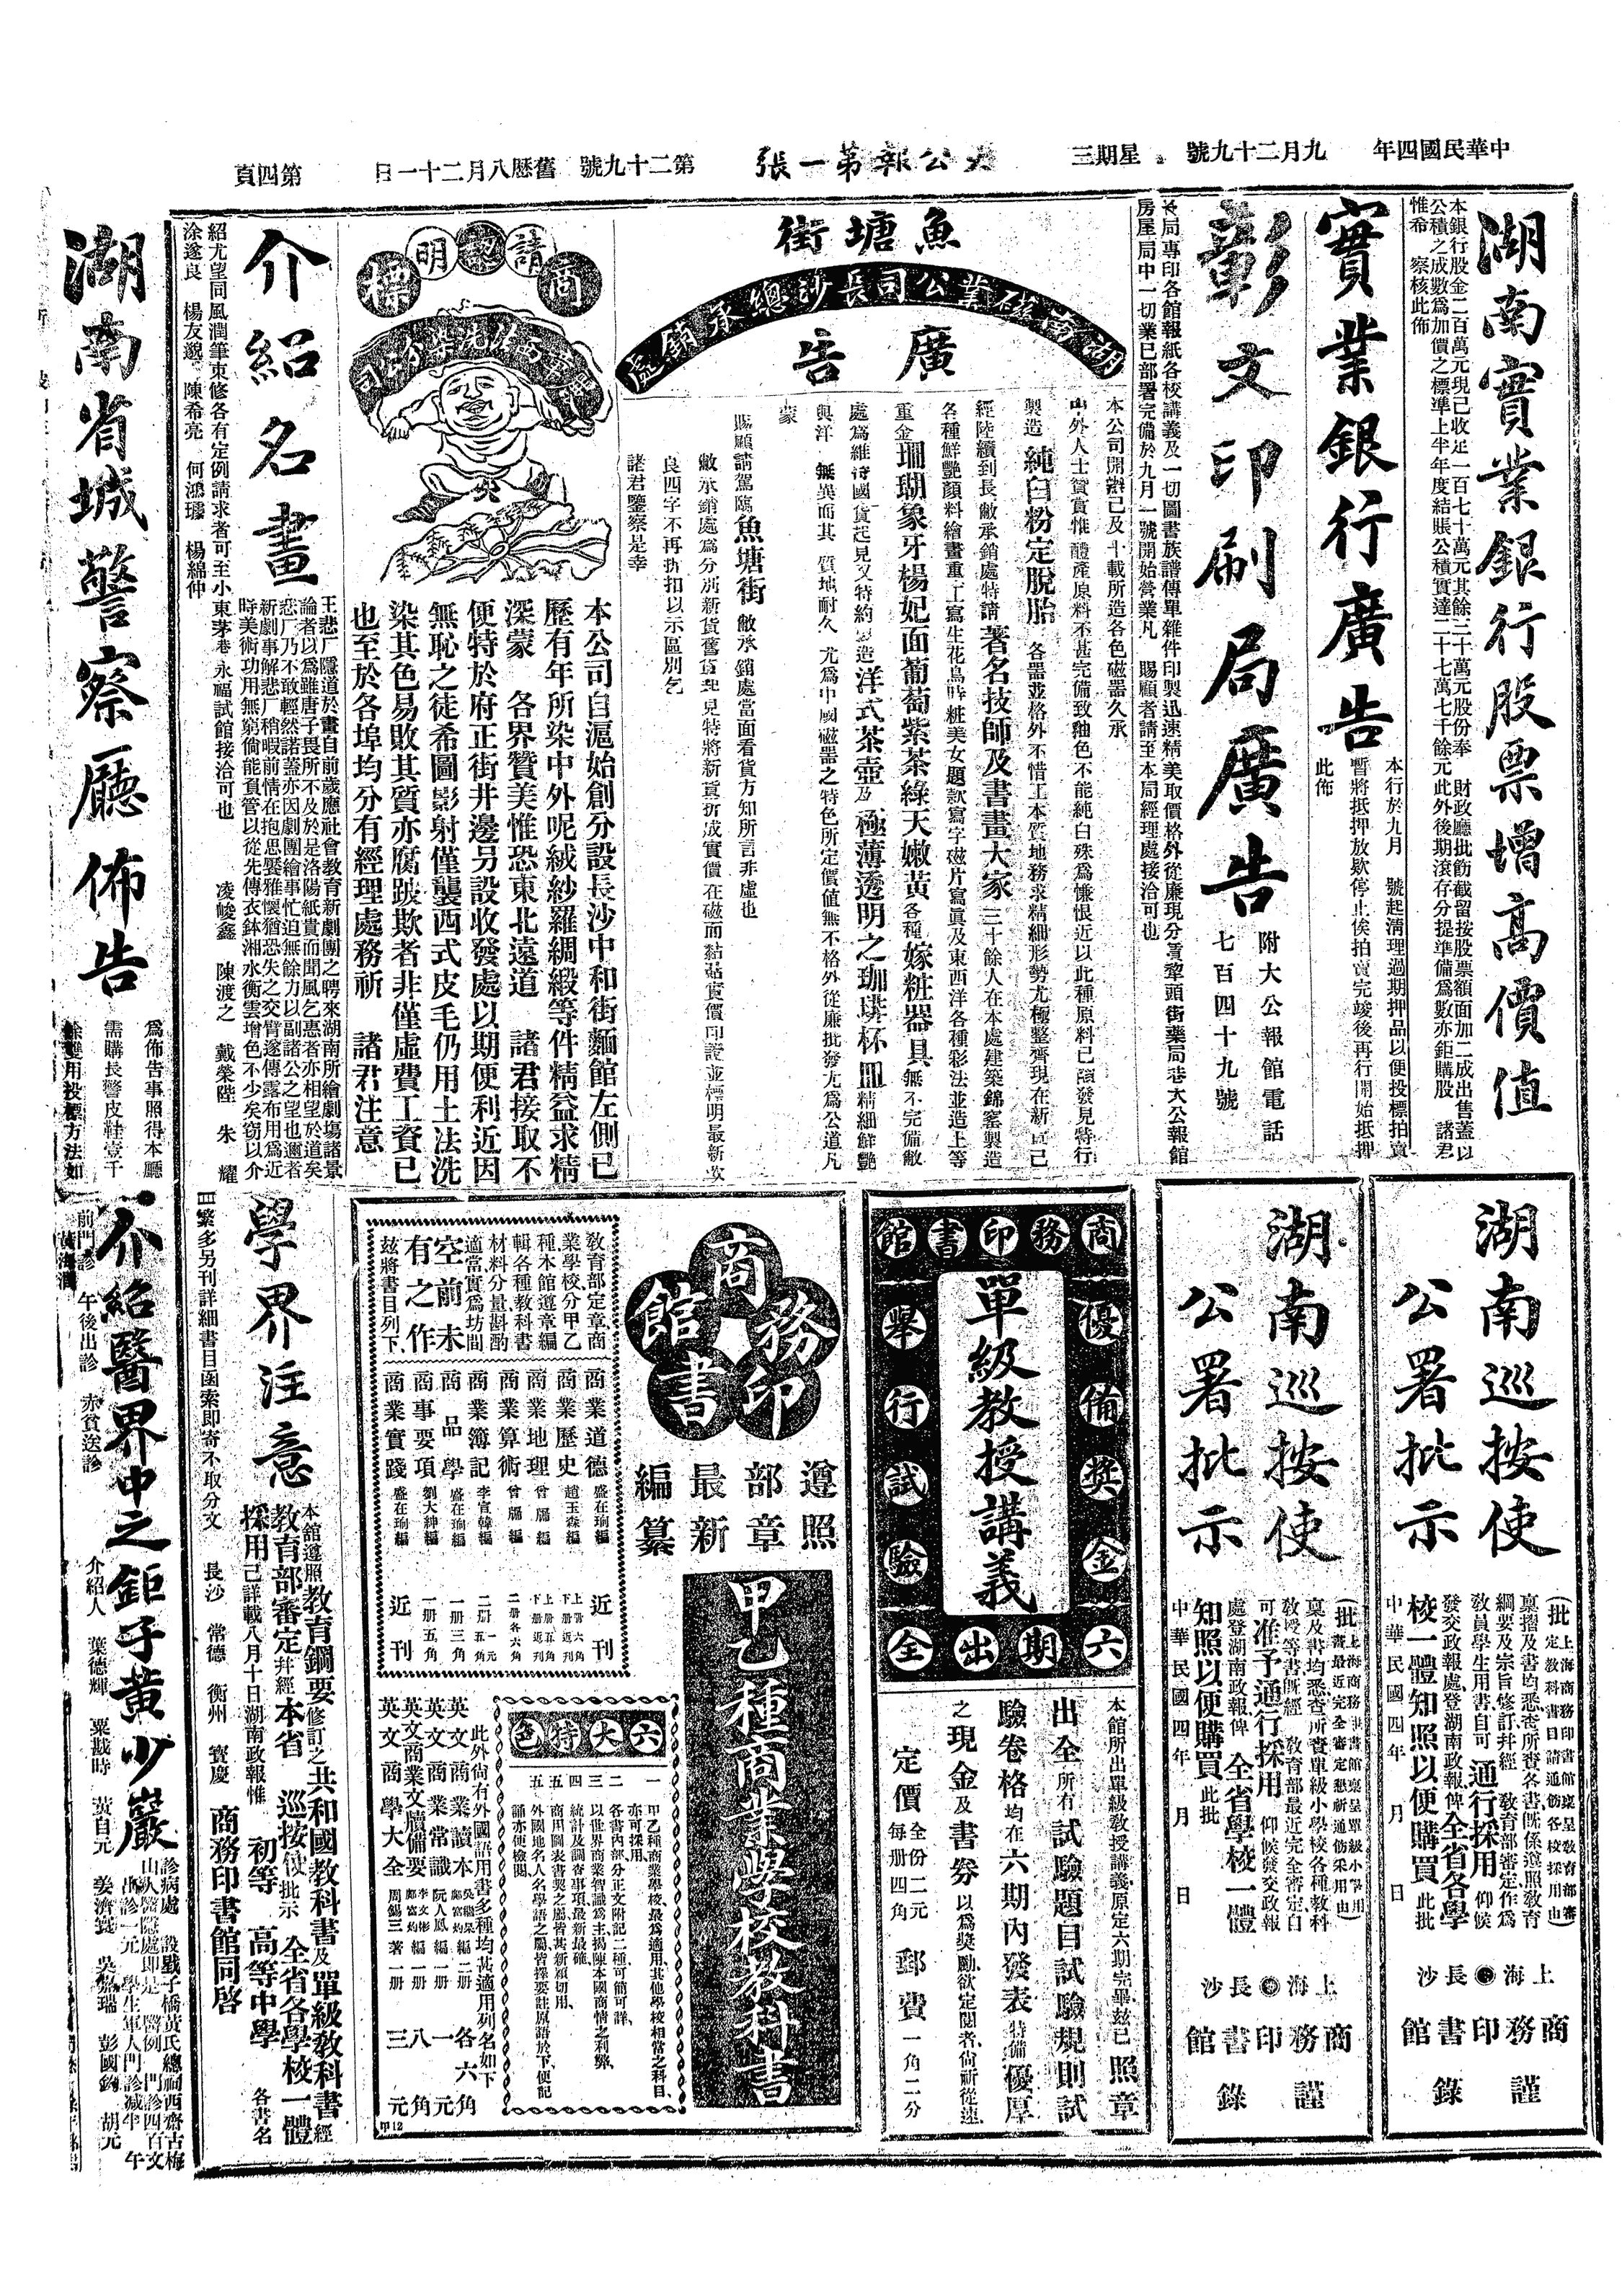 中華民國四年
九月二十九號
星期三
大公報第一張
第二十九號
舊歷八月二十一日
第四頁
湖南實業銀行股票增高價值
本銀行股金二百萬元現已收足一百七十萬元其餘三十萬元股份奉 財政廳批飭截留按股票額面加二成出售蓋以
公積之成數爲加價之標準上半年度結賬公積實達二十七萬七千餘元此外後期滾存分提準備爲數亦鉅購股 諸君
惟希 察核此佈
實業銀行廣告
本行於九月 號起清理過期押品以便投標拍賣
暫將抵押放欵停止俟拍賣完竣後再行開始抵押
此佈
彰文印刷局廣告
附大公報館電話
七百四十九號
本局專印各館報紙各校講義及一切圖書族譜傳單雜件印製迅速精美取價格外從廉現分賣犂頭街藥局巷大公報館
房屋局中一切業已部署完備於九月一號開始營業凡 賜顧者請至本局經理處接洽可也
魚塘街
湖南磁業公司長沙總承銷處
廣告
本公司開辦已及十載所造各色磁器久承
中外人士賞賞惟醴產原料不甚完備致釉色不能純白殊爲慊恨近以此種原料已強發見特行
製造 純白粉定脫胎 各器並格外不惜工本質地務求精細形勢尤極整齊現在新
經陸續到長敝承銷處特請著名技師及書畫大家三十餘人在本處建築錦窰製造
各種鮮艷顏料繪畫重工寫生花鳥時粧美女題欵寫字磁片寫眞及東西洋各種彩法並造上等
重金珊瑚象牙楊妃面葡萄紫茶綠天嫩黃各種嫁粧器具無不完備敝
處爲維持國貨起見又特約 造洋式茶壺及極薄透明之珈琲杯皿精細鮮艷
與洋 無異而其 質地耐久 尤爲中國磁器之特色所定價值無不格外從廉批發尤爲公道凡
蒙
賜顧請駕臨魚塘街敝承銷處當面看貨方知所言非虛也
敝承銷處爲分別新貨舊貨起見特將新貨折成實價在磁面黏貼實價印證並標明最新放
良四字不再折扣以示區別乞
諸君鑒察是幸
商請認明標
本公司自滬始創分設長沙中和街麵館左側已
歷有年所染中外呢絨紗羅綢緞等件精益求精
深蒙 各界贊美惟恐東北遠道 諸君接取不
便特於府正街井邊另設收發處以期便利近因
無恥之徒希圖影射僅襲西式皮毛仍用土法洗
染其色易敗其質亦腐跛欺者非僅虛費工資已
也至於各埠均分有經理處務祈 諸君注意
介紹名畫
王悲厂隱道於畫自前歲應社會教育新劇團之聘來湖南所繪劇塲諸景
論者以爲雖唐子畏所不及於是洛陽紙貴而聞風乞惠者亦相望於道矣
悲厂乃不敢輕然諾蓋亦因劇團繪事忙迫無餘力以副諸公之望也邇者
新劇事解悲厂稍暇前情在抱思嬰雅懷猶恐失之交臂遂傳露布用爲近
時美術功用無窮倘能貢管以從先傳衣鉢湘水衡雲增色不少矣窃以介
紹尤望同風潤筆束修各有定例請求者可至小東茅巷永福試館接洽可也
凌峻鑫 陳渡之 戴榮陞 朱耀
涂遂良 楊友邈 陳希亮 何鴻璩 楊綿仲
湖南省城警察廳佈告
爲佈告事照得本廳
需購長警皮鞋壹千
餘雙用投標方法如
湖南巡按使
公署批示
(批上海商務印書館稟呈敎育部審
定敎科書目請通飭各校採用由)
稟摺及書均悉查所查各書旣係遵照敎育
綱要及宗旨修訂幷經 敎育部審定作爲
敎員學生用書自可 通行採用 仰候
發交政報處登湖南政報俾全省各學
校一體知照以便購買此批
中華民國四年 月 日
上海長沙
商務印書館
謹錄
湖南巡按使
公署批示
(批上海商務印書館稟呈單級小學用
書最近完全審定懇祈通飭采用由)
稟及書均悉查所賚單級小學校各種敎科
敎授等書旣經 敎育部最近完全審定自
可准予通行採用 仰候發交政報
處登湖南政報俾 全省學校一體
知照以便購買此批
中華民國四年 月 日
上海長沙
商務印書館
謹錄
商務印書館
單級教授講義
優備獎金
舉行試驗
六期出全
本館所出單級敎授講義原定六期完畢茲已照章
出全所有試驗題目試驗規則試
驗卷格均在六期內發表特備優厚
之現金及書券以爲獎勵欲定閱者尙祈從速
定價 全份二元 每册四角 郵費一角二分
商務印書館
遵照部章最新編纂
甲乙種商業學校教科書
敎育部定章商
業學校分甲乙
種本館遵章編
輯各種敎科書
材料分量斟酌
適當實爲坊間
空前未
有之作
茲將書目列下
商業道德 盛在珦編 近刊
商業歷史 趙玉森編 上册六角 下册近刊
商業地理 曾膺編 上册五角 下册近刊
商業算術 曾膺編 二册各六角
商業簿記 李宣韓編 二册一元五角
商品學 盛在珦編 一册三角
商事要項 劉大紳編 一册五角
商業實踐 盛在珦編 近刊
六大特色
一 甲乙種商業學校最爲適用其他學校相當之科目、
亦可採用
二 各書內部分正文附記二種可簡可詳、
三 以世界商業智識爲主揭陳本國商情之利弊、
四 統計及調查事項最新最確、
五 商用圖表書契之屬皆甚新穎切用、
五 外國地名人名學語之屬皆擇要註原語於下便記
誦亦便檢閱、
此外尙有外國語用書多種均甚適用列名如下
英文商業讀本 吳繼杲 鄺富灼編 二册 各六角
英文商業常識 阮人鳳編 一册 一元
英文商業文牘備要 李文彬 鄺富灼編 一册 八角
英文商學大全 周錫三著 一册 三元
甲12
學界注意
本館遵照敎育鋼要修訂之共和國敎科書及單級敎科書經
敎育部審定幷經本省 巡按使批示 全省各學校一體
採用已詳載八月十日湖南政報惟 初等 高等中學 各書名
目繁多另刊詳細書目函索即寄不取分文 長沙 常德 衡州 寶慶 商務印書館同啓
介紹醫界中之鉅子黃少巖
診病處 設戥子橋黃氏總祠西齋古梅
山人醫隱處即是 醫例 門診四百文
出診一元 學生軍人門診減半 午
前門診 午後出診 赤貧送診
介紹人 葉德輝 粟戡時 黃自元 姜濟寰 吳嘉瑞 彭國鈞 胡元
黃海潤